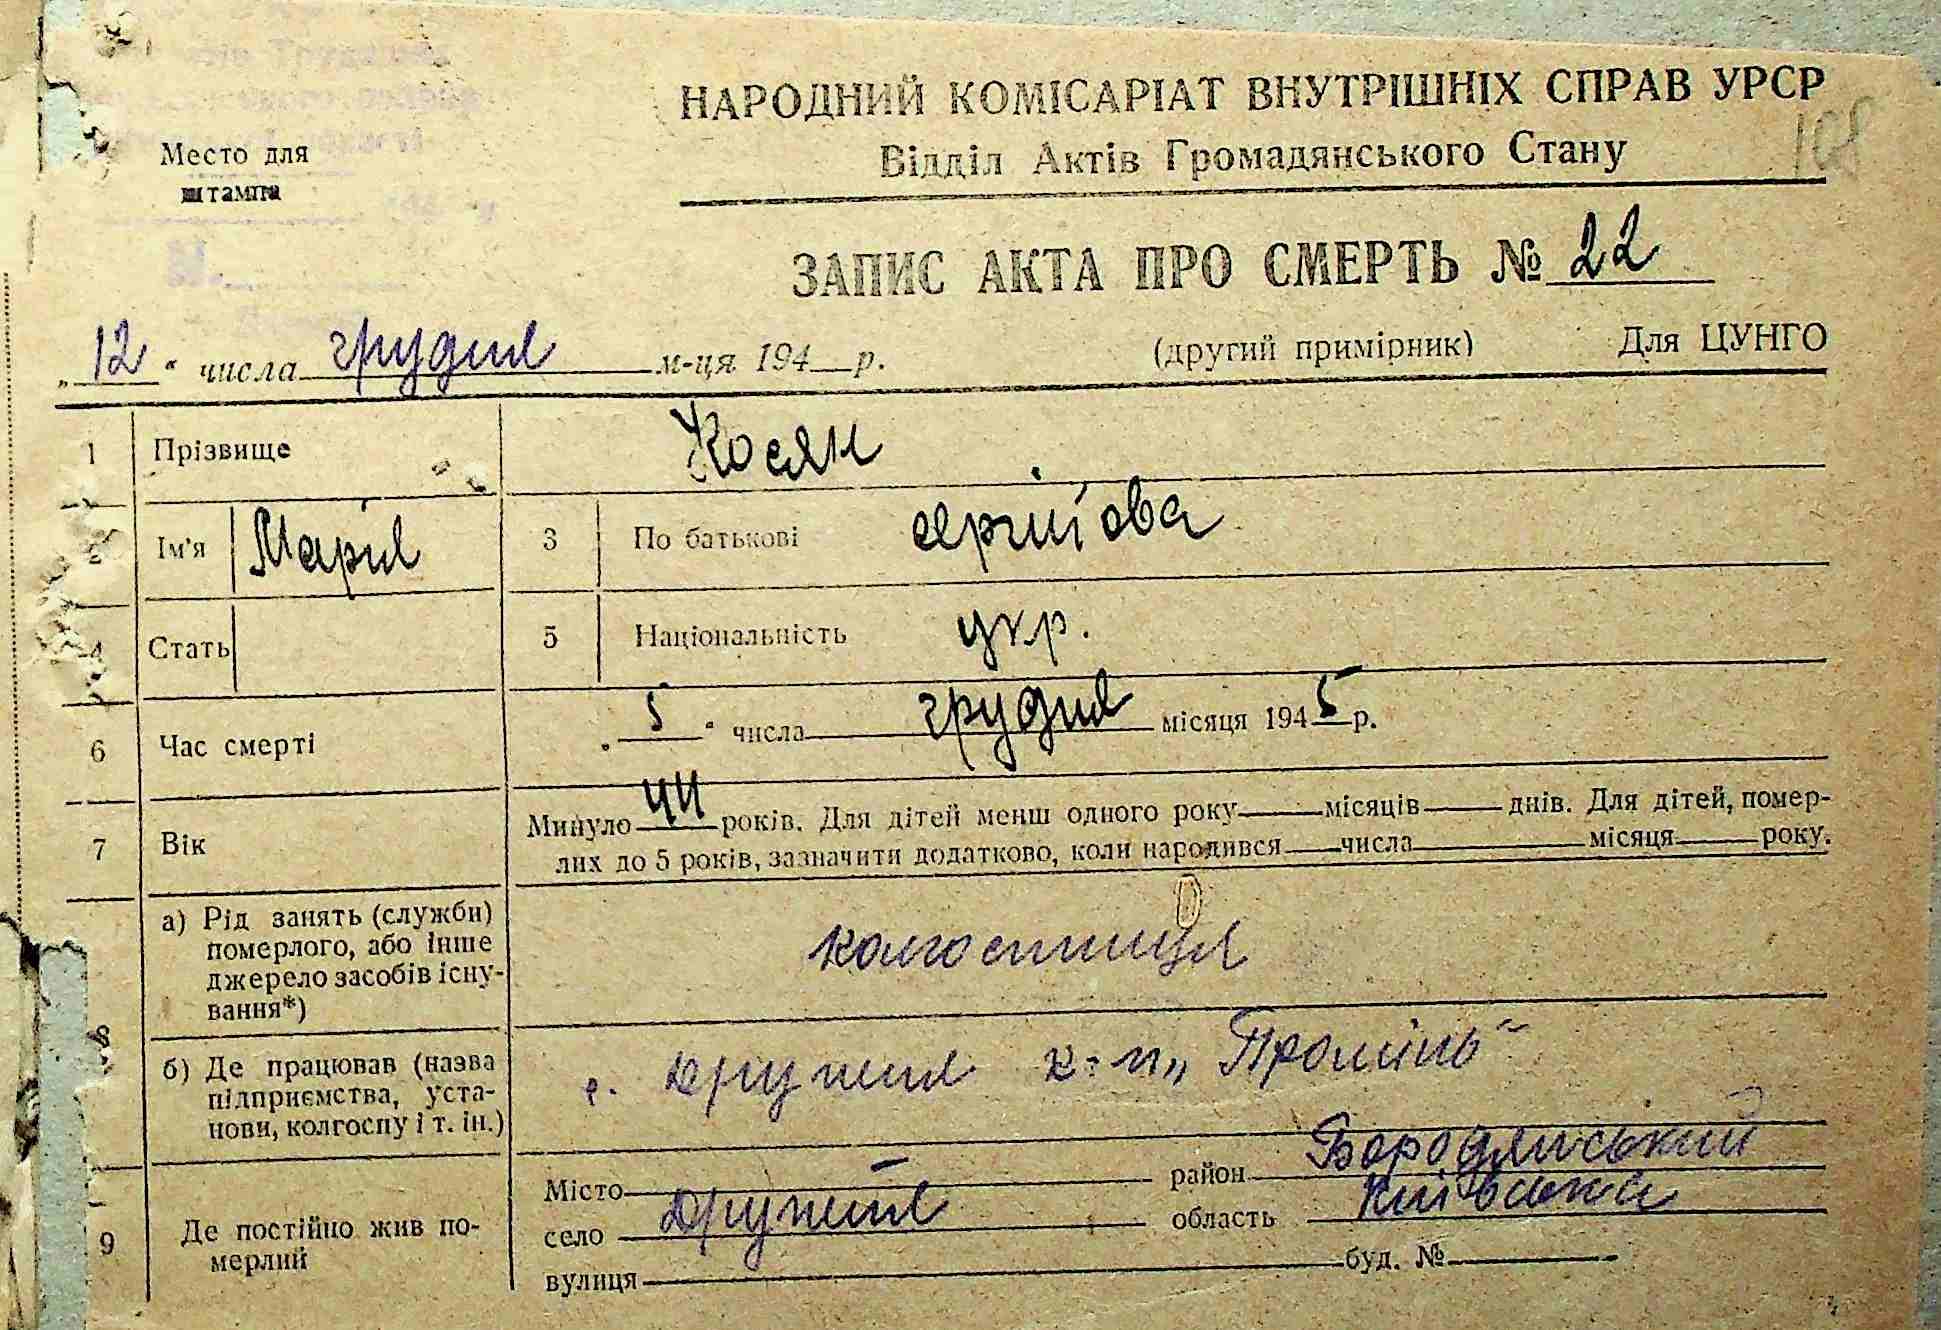 НАРОДНИЙ КОМІСАРІАТ ВНУТРІШНІХ СПРАВ УРСР
108
Відділ Актів Громадянського Стану
Место для
штампа
ЗАПИС АКТА ПРО СМЕРТЬ № 22
„12“ числа грудня м-ця 194 р.
(другий примірник) Для ЦУНГО
1 Прізвище Косян
2 Ім'я Марія 3 По батькові сергіїова
4 Стать 5 Національність укр.
6 Час смерті „5“ числа грудня місяця 1945 р.
7 Вік Минуло 44 років. Для дітей менш одного року місяців днів. Для дітей, помер-
лих до 5 років, зазначити додатково, коли народився числа місяця року.
8 а) Рід занять (служби)
померлого, або інше
джерело засобів існу-
вання*)
колгоспниця
б) Де працював (назва
підприємства, уста-
нови, колгоспу і т. ін.)
с. Дружня к-п „Промінь“
9 Де постійно жив по-
мерлий
Місто — район Бородянський
село Дружня область Київська
вулиця буд. №